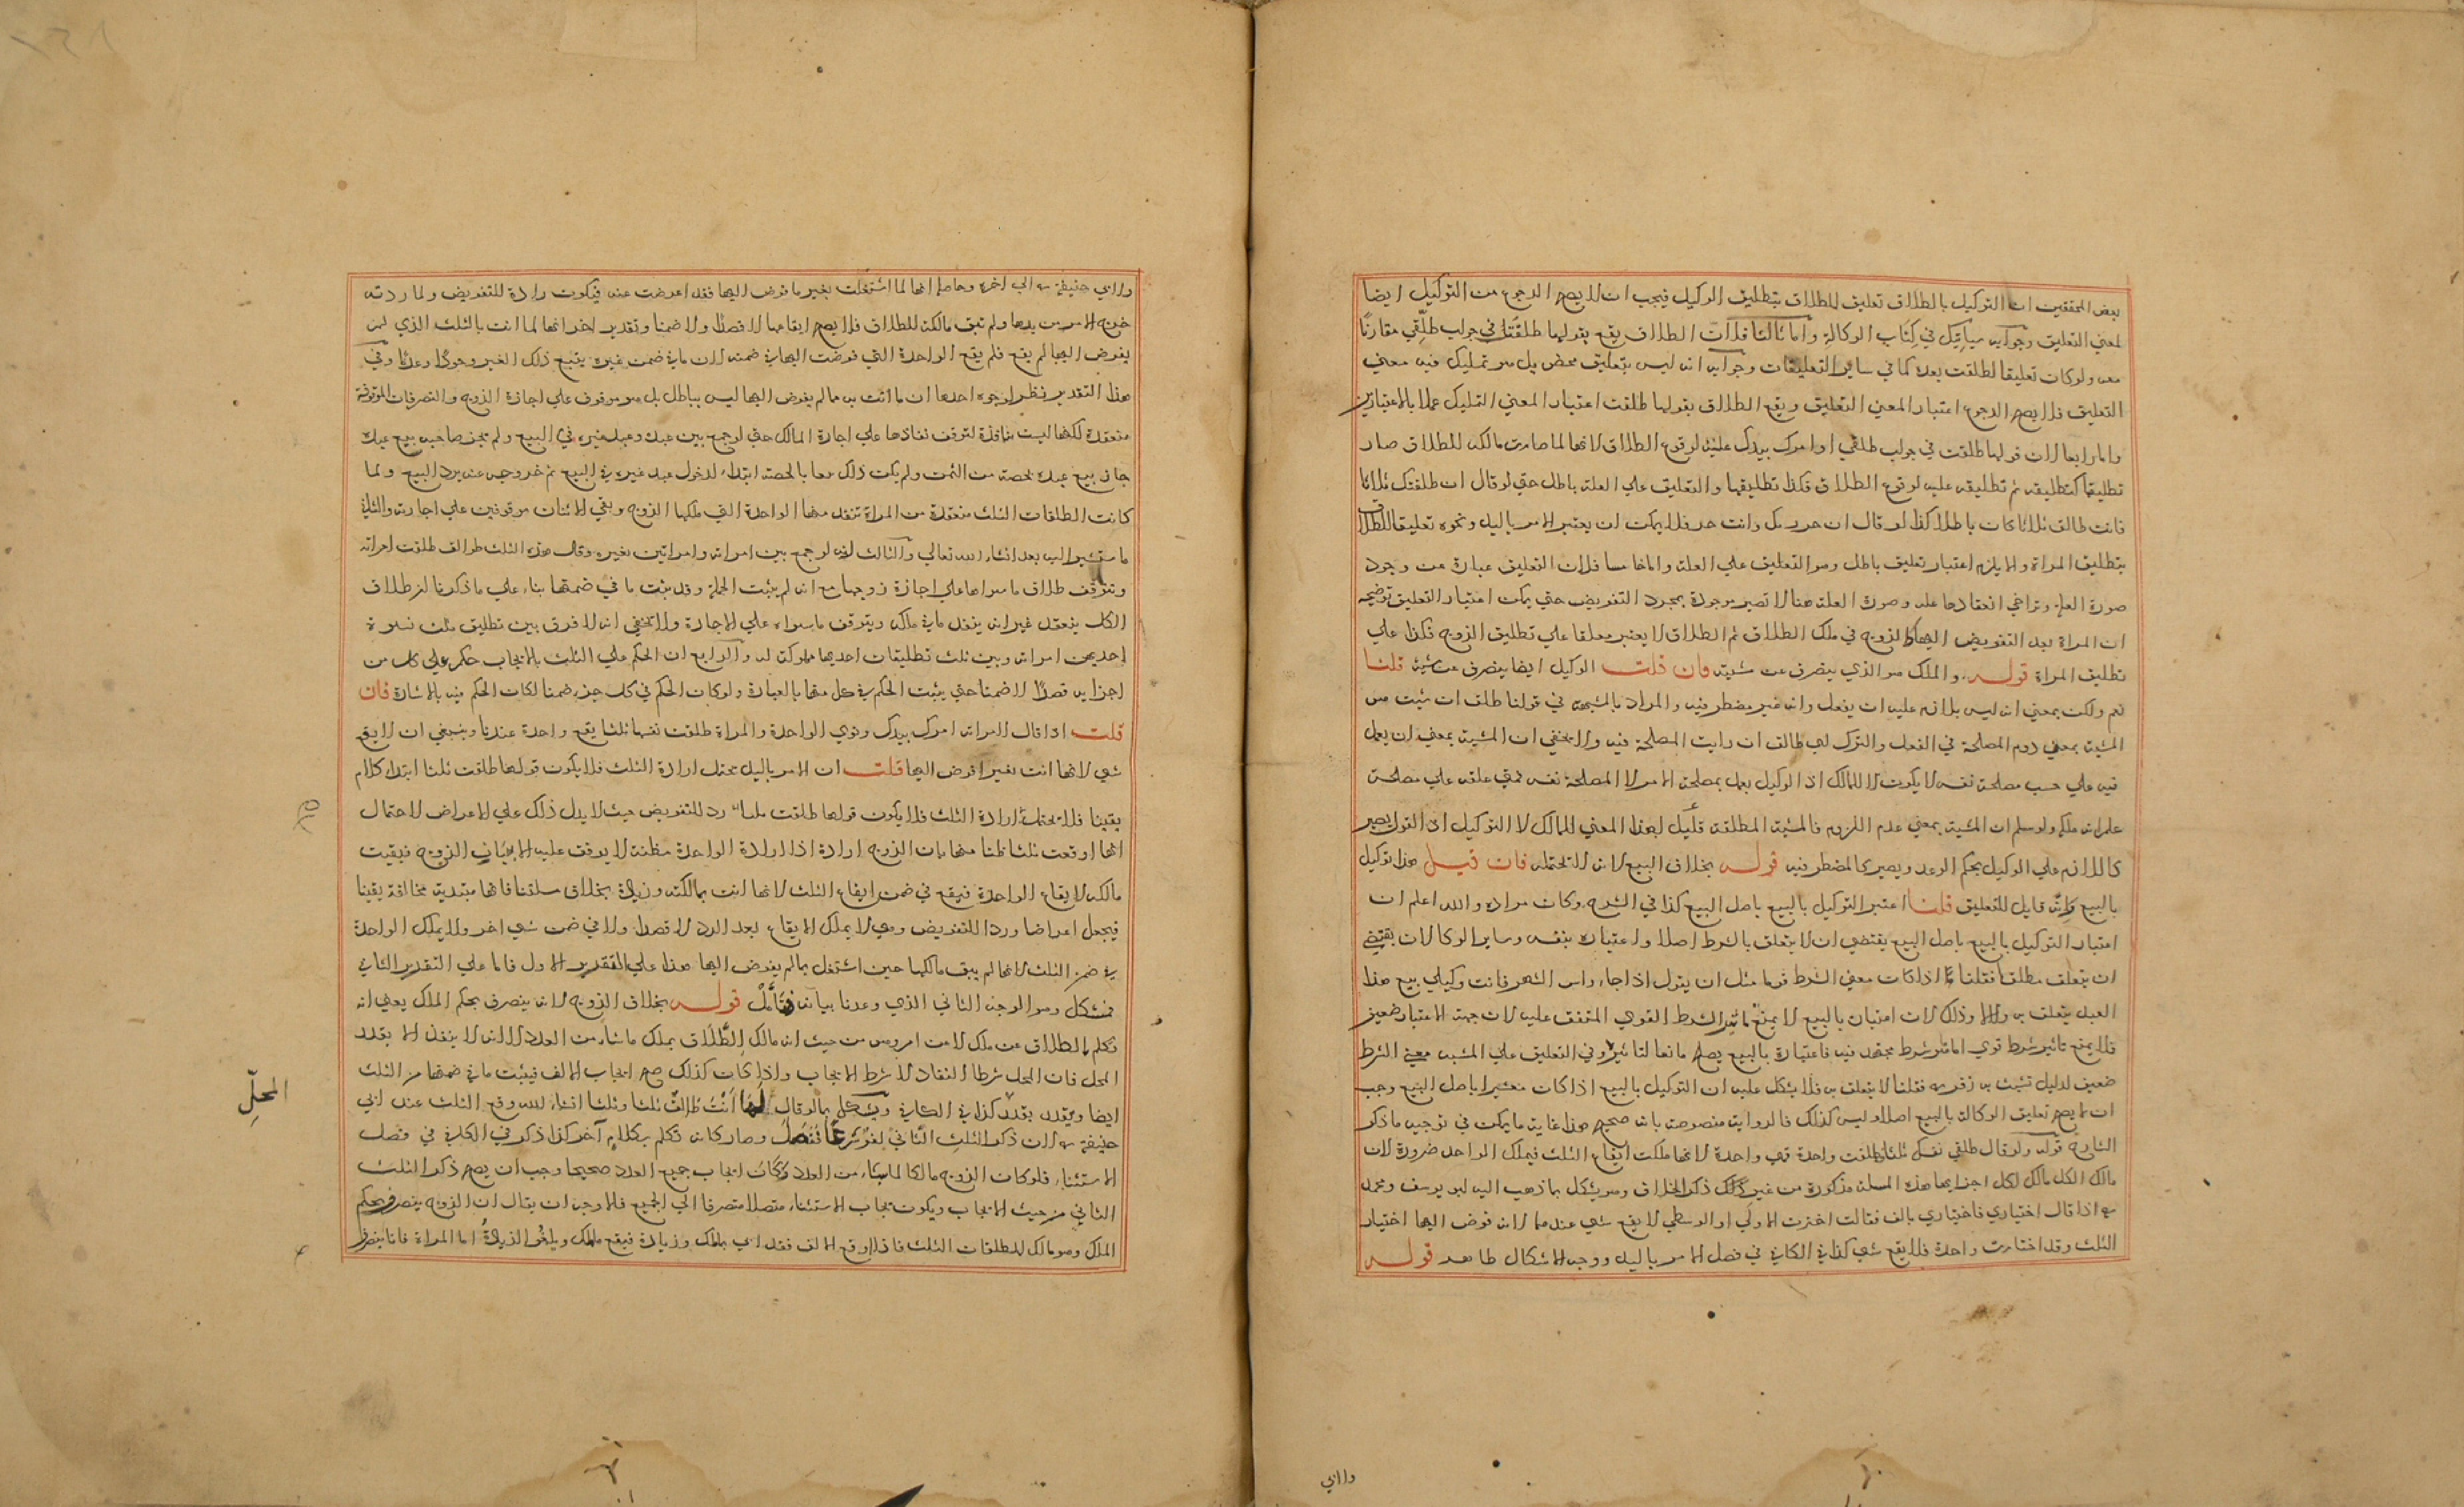 بعض المحققين ان التوكيل بالطلاق تعليق للطلاق بتطليق الوكيل فيجب ان لا يصح الرجوع من التوكيل ايضا
لمعني التعليق وجوابه سياتيك في كتاب الوكالة واما ثالثا فلان الطلاق يقع بقولها طلقت في جواب طلقي مقارنا
معه ولو كان تعليقا لطلقت بعده كما في ساير التعليقات وجوابه انه ليس بتعليق محض بل هو تمليك فيه معني
التعليق فلا يصح الرجوع اعتبار المعني التعليق ويقع الطلاق بقولها طلقت اعتبار المعني التمليك عملا بالاعتبارين
واما رابعا لان قولها طلقت في جواب طلقي او امرك بيدك علة لوقوع الطلاق لانها لما صارت مالكة للطلاق صار
تطليقها كتطليقه ثم تطليقه علة لوقوع الطلاق فكذا تطليقها والتعليق علي العلة باطل حتي لو قال ان طلقتك ثلاثا
فانت طالق ثلاثا كان باطلا كذا لو قال ان حررتك وانت حر فلا يمكن ان يعتبر الامر باليد ونحوه تعليقا للطلاق
بتطليق المراة والا يلزم اعتبار تعليق باطل وهو التعليق علي العلة واما خامسا فلان التعليق عبارة عن وجود
صورة العلة وتراخي انعقادها علة وصورة العلة هنا لا تصير موجودة بمجرد التفويض حتي يمكن اعتبار التعليق توضيحه
ان المراة بعد التفويض اليها كالزوج في ملك الطلاق ثم الطلاق لا يعتبر معلقا علي تطليق الزوج فكذا علي
تطليق المراة قوله والملك هو الذي يتصرف عن مشيته فان قلت الوكيل ايضا يتصرف عن مشية قلنا
نعم ولكن بمعني انه ليس بلازم عليه ان يفعل وانه غير مضطر فيه والمراد بالمشية في قولنا طلق ان شئت هي
المشية بمعني روم المصلحة في الفعل والترك اي طالق ان رايت المصلحة فيه ولا يخفي ان المشية بمعني ان يعمل
فيه علي حسب مصلحة نفسه لا يكون الا للمالك اذ الوكيل يعمل بمصلحة الامر لا المصلحة نفسه فمتي علقه علي مصلحته
علم انه ملكه ولو سلم ان المشية بمعني عدم اللزوم فالمشية المطلقة دليل لهذا المعني للمالك لا التوكيل اذ التوكيل يصير
كاللازم علي الوكيل بحكم الوعد ويصير كالمضطر فيه قوله بخلاف البيع لانه لا يحتمله فان قيل هذا توكيل
بالبيع وانه قابل للتعليق قلنا اعتبر التوكيل بالبيع باصل البيع كذا في الشرح وكان مراده والله اعلم ان
اعتبار التوكيل بالبيع باصل البيع يقتضي ان لا يتعلق بالشرط اصلا واعتباره بنفسه وساير الوكالات يقتضي
ان يتعلق مطلقا فقلنا اذا كان معني الشرط قويا مثل ان يقول اذا جاء راس الشهر فانت وكيلي ببيع هذا
العبد يتعلق به والا وذلك لان اعتباره بالبيع لا يمنع تاثير الشرط القوي المتفق عليه لان جهة الاعتبار ضعيفة
فلا يمنع تاثير شرط قوي اما في شرط مجتهد فيه فاعتباره بالبيع يصلح مانعا لتاثيره وفي التعليق علي المشية معني الشرط
ضعيف لدليل تشبث به زفر رحمه فقلنا لا يتعلق به فلا يشكل عليه ان التوكيل بالبيع اذا كان معتبرا باصل البيع وجب
ان لا يصح تعليق الوكالة بالبيع اصلا وليس كذلك فالرواية منصوصة بانه صحيح هذا غاية ما يمكن في توجيه ما ذكر
الشارح قوله ولو قال طلقي نفسك ثلاثا فطلقت واحدة فهي واحدة لانها ملكت ايقاع الثلث فيملك الواحد ضرورة لان
مالك الكل مالك لكل اجزايها هذه المسئلة مذكورة من غير ذكر الخلاف وهو يشكل بما ذهب اليه ابو يوسف ومحمد
رحمه اذا قال اختياري فاختياري بالف فقالت اخترت الاولي او الوسطي لا يقع شي عندهما لانه فوض اليها اختيار
الثلث وقد اختارت واحدة فلا يقع شي كذا في الكافي في فصل الامر باليد ووجه الاشكال ظاهر قوله
ولابي
ولابي حنيفة رحمه الي اخره وحاصله انها لما اشتغلت بغير ما فوض اليها فقد اعرضت عنه فيكون رادة للتفويض ولما ردته
خرج الامر من يدها ولم تبق مالكة للطلاق فلا يصح ايقاعها لا قصدا ولا ضمنا وتقدير اخر انها لما اتت بالثلث الذي لم
يفوض اليها لم يقع فلم يقع الواحدة التي فوضت اليها في ضمنه لان ما في ضمن غيره يتبع ذلك الغير وجودا وعدما وفي
هذا التقدير نظر لوجوه احدها ان ما اتت به مما لم يفوض اليها ليس بباطل بل هو موقوف علي اجازة الزوج والتصرفات الموقوفة
منعقدة لكنها ليست بنافذة لتوقف نفاذها علي اجازة المالك حتي لو جمع بين عبده وعبد غيره في البيع ولم يجز صاحبه بيع عبده
جاز بيع عبده بحصته من الثمن ولم يكن ذلك بيعا بالحصة ابتداء لدخول عبد غيره في البيع ثم خروجه عنه برد البيع ولما
كانت الطلقات الثلث منعقدة من المراة تنفذ منها الواحدة التي ملكها الزوج وبقي الاثنان موقوفين علي اجازته والثاني
ما سنشير اليه بعد ان شاء الله تعالي والثالث انه لو جمع بين امراته وامراتين لغيره وقال هذه الثلث طوالق طلقت امراته
ويتوقف طلاق ما سواها علي اجازة زوجها مع انه لم يثبت الجملة وقد يثبت ما في ضمنها بناء علي ما ذكرنا ان طلاق
الكل ينعقد غير انه ينفذ ما في ملكه ويتوقف ما سواه علي الاجازة ولا يخفي انه لا فرق بين تطليق ثلث نسوة
احديهن امراته وبين ثلث تطليقات احديها مملوكة له والرابع ان الحكم علي الثلث بالايجاب حكم علي كل من
اجزايه قصدا لا ضمنا حتي يثبت الحكم في كل منها بالعبارة ولو كان الحكم في كل جزء ضمنا لكان الحكم فيه بالاشارة فان
قلت اذا قال لامراته امرك بيدك ونوي الواحدة والمراة طلقت نفسها ثلثا يقع واحدة عندنا وينبغي ان لا يقع
شي لانها اتت بغير ما فوض اليها قلت ان الامر باليد يحتمل ارادة الثلث فلا يكون قولها طلقت ثلثا ابتداء كلام
يقينا فلا يحتمل ارادة الثلث فلا يكون قولها طلقت ثلثا رد للتفويض حيث لا يدل ذلك علي الاعراض لاحتمال
انها اوقعت ثلثا ظنا منها بان الزوج ارادة اذ ارادة الواحدة مظنة لا يوقف عليه الا ببيان الزوج فبقيت
مالكة لايقاع الواحدة فيقع في ضمن ايقاع الثلث لانها اتت بمالكته وزيادة بخلاف مسئلتنا فانها مبتدية مخالفة يقينا
فيجعل اعراضا وردا للتفويض وهي لا يملك الايقاع بعد الرد لا قصدا ولا في ضمن شي اخر ولا يملك الواحدة
في ضمن الثلث لانها لم يبق مالكها حين اشتغل بما لم يفوض اليها هذا علي التقدير الاول فاما علي التقدير الثاني
فمشكل وهو الوجه الثاني الذي وعدنا بيانه فتامل قوله بخلاف الزوج لانه يتصرف بحكم الملك يعني انه
تكلم بالطلاق عن ملك لا من امر وهي من حيث انه مالك الطلاق يملك ما شاء من العدد الا انه لا ينفذ الا بقدر
المحل فان المحل شرط النفاذ لا شرط الايجاب واذا كان كذلك صح ايجاب الالف فيثبت ما في ضمنها من الثلث
ايضا ويتعدد بقدره كذا في الكافي ويشكل بما لو قال لها انت طالق ثلثا وثلثا ان شاء الله وقع الثلث عند ابي
حنيفة رحمه لان ذكر الثلث الثاني لغو شرعا فتفصل وصار كانه تكلم بكلام آخر كذا ذكر في الكافي في فصل
الاستثناء فلو كان الزوج مالكا لما شاء من العدد وكان ايجاب جميع العدد صحيحا وجب ان يصح ذكر الثلث
الثاني من حيث الايجاب ويكون بجاب الاستثناء متصلا متصرفا الي الجميع فالاوجه ان يقال ان الزوج يتصرف بحكم
الملك وهو مالك للطلقات الثلث فاذا اوقع الالف فقد اتي بالملك وزيادة فيقع ماملك ويلغو الزيادة اما المراة فانما يتصرف
المحل